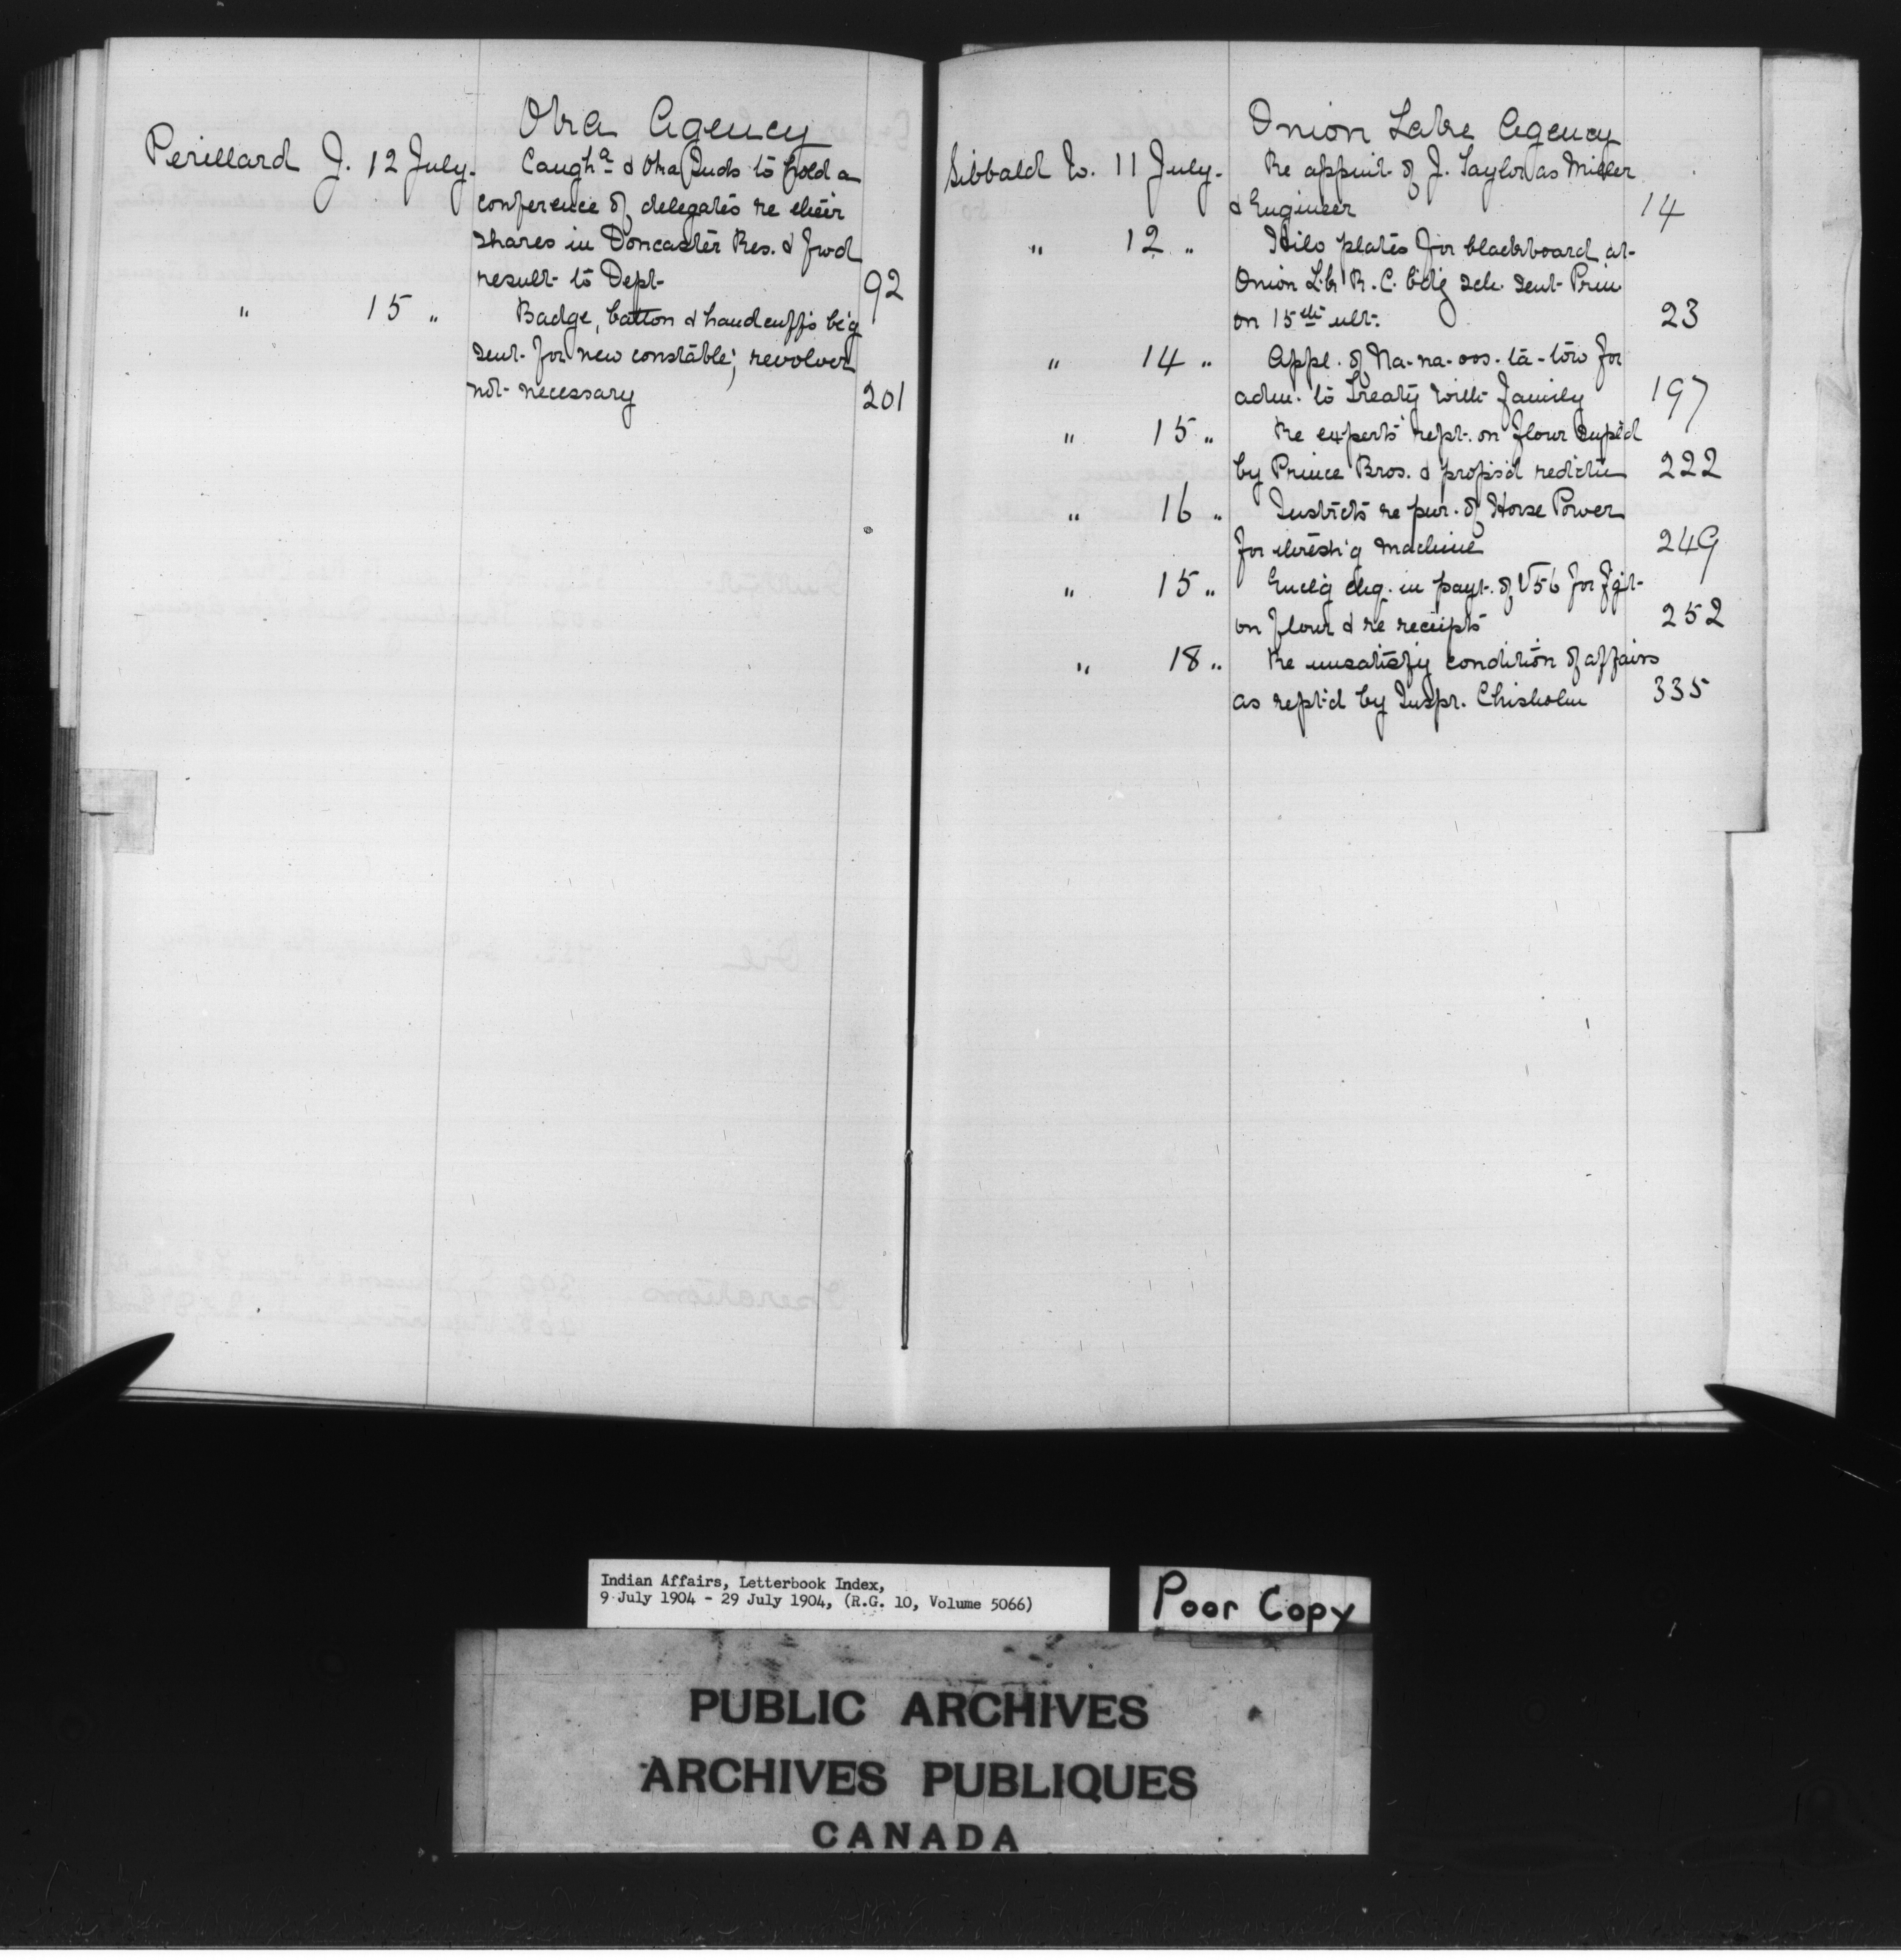 Oka Agency
Perillard J. 12 July. Caugha & Oka Inds to hold a
conference of delegates re their
shares in Doncaster Res. & fwd
result to Dept. 92
" 15 " Badge, batton & handcuffs be'g
sent for new constable; revolver
not necessary 201
Onion Lake Agency
Sibbald W. 11 July. Re appmt. of J. Taylor as Miller
& Engineer 14
" 12 " plates for blackboard at
Onion Lk R. C. b'd'g sch. sent Prin
on 15th ult. 23
" 14 " Appl. of Na-na-oos-ta-tow for
adm. to Treaty with family 197
" 15 " Re experts rept. on flour supl'd
by Prince Bros. & propos'd red'ct'n 222
" 16 " Instr'cts re pur. of Horse Power
for thresh'g machine 249
" 15 " Encl'g chq. in payt. of V56 for fgt.
on flour & re receipts 252
" 18 " Re unsatisfy condition of affairs
as rept'd by Inspr. Chisholm 335
Indian Affairs, Letterbook Index,
9 July 1904 - 29 July 1904, (R.G. 10, Volume 5066)
Poor Copy
PUBLIC ARCHIVES
ARCHIVES PUBLIQUES
CANADA